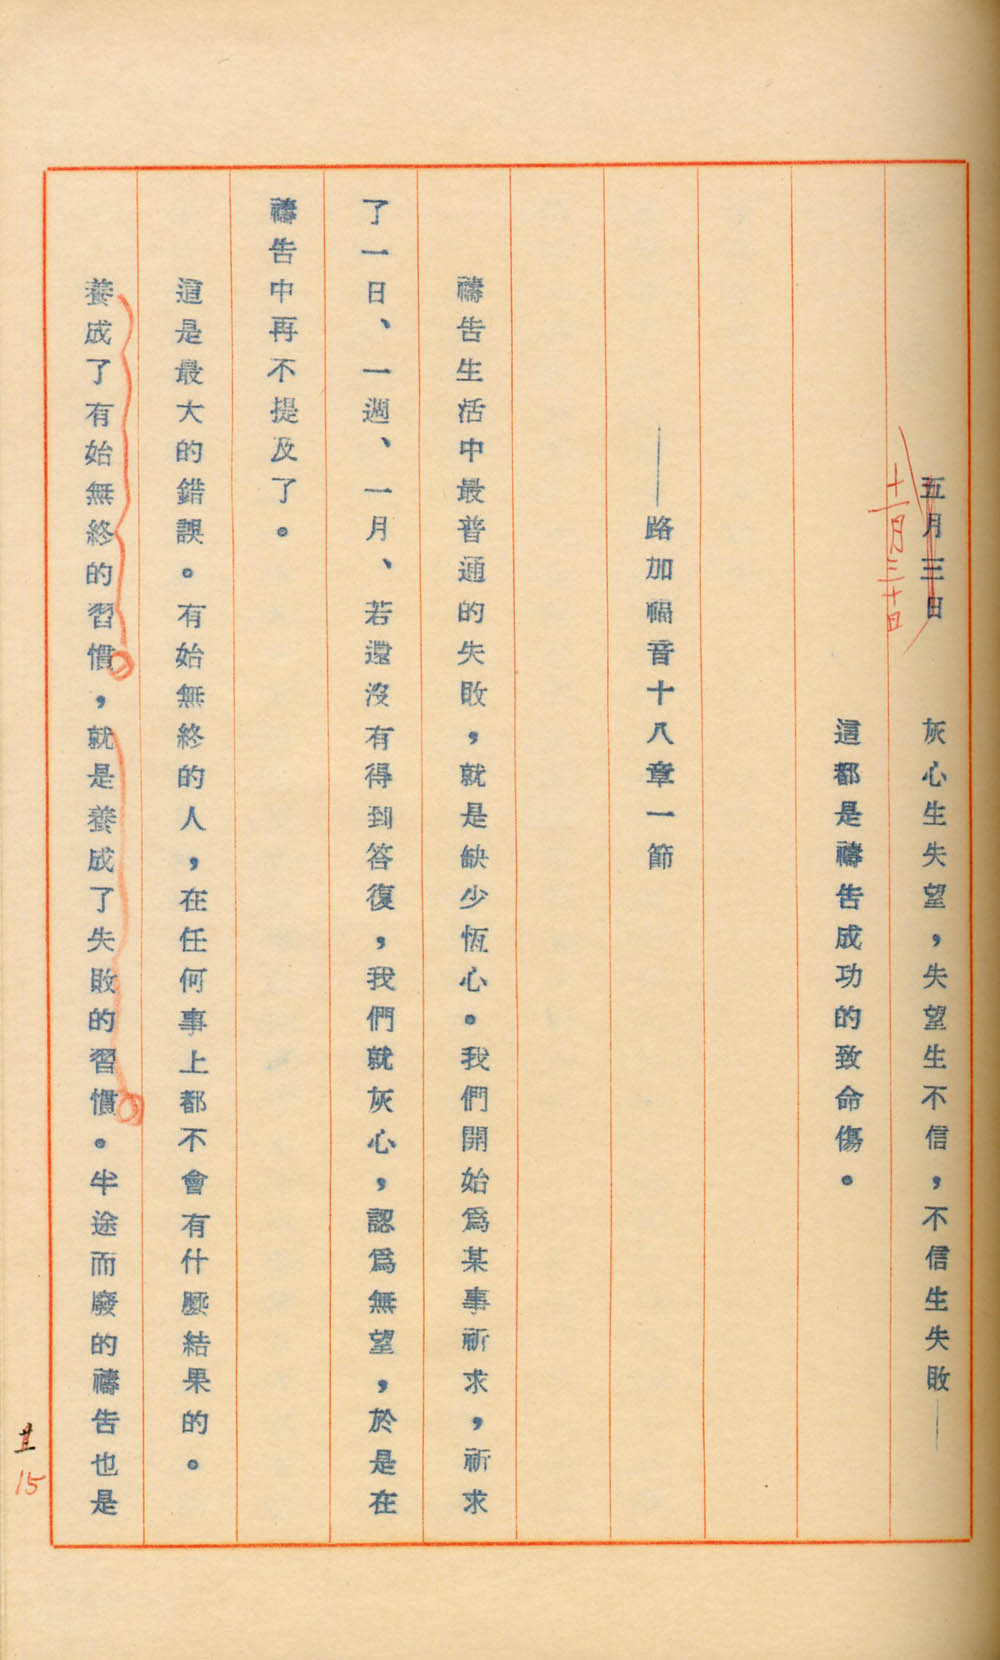 五月三日　灰心生失望，失望生不信，不信生失敗——
十一月三十日
這都是禱告成功的致命傷。
——路加福音十八章一節
禱告生活中最普通的失敗，就是缺少恆心。我們開始爲某事祈求，祈求
了一日、一週、一月、若還沒有得到答復，我們就灰心，認爲無望，於是在
禱告中再不提及了。
這是最大的錯誤。有始無終的人，在任何事上都不會有什麼結果的。
養成了有始無終的習慣，就是養成了失敗的習慣。半途而廢的禱告也是
15